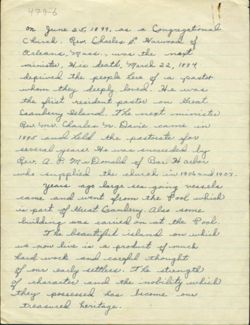 479-6
on June 25, 1899, as a Congregational
Church. Rev. Charles L. Harwood of
Orleans, Mass., was the next
minister. His death, March 22, 1904
deprived the people here of a pastor
whom they deeply loved. He was
the first resident pastor on Great
Cranberry Island. The next minister
Rev. Mr. Charles N. Davie came in
1905 and held the pastorate for
several years. He was succeeded by
Rev. A. P. McDonald of Bar Harbor
who supplied the church in 1906 and 1907.
Years ago large sea going vessels
came and went from the Pool which
is part of Great Cranberry. Also some
building was carried on at the Pool.
The beautiful island on which
we now live is a product of much
hard work and careful thought
of our early settlers. The strength
of character and the nobility which
they possessed has become our
treasured heritage.